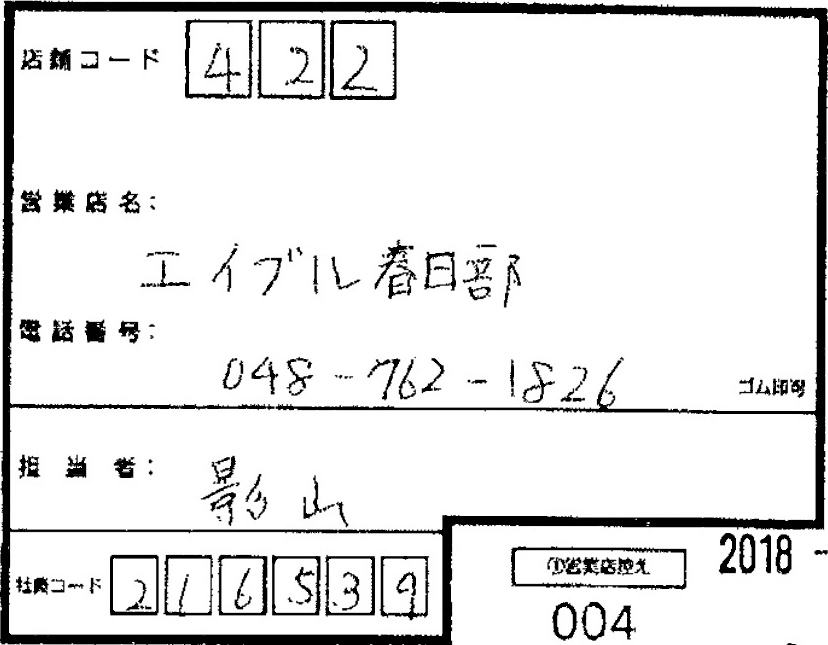 店舗コード 422
営業店名:
エイブル春日部
電話番号:
048-762-1826
ゴム印可
担当者:
影山
社員コード 216539
①営業店控え
2018 -
004